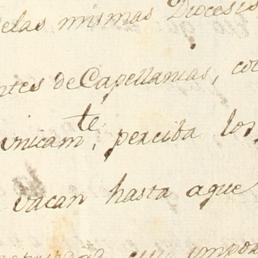 elas mismas Diocesis
ntes de Capellanias, co
unicam.te, perciba los
vacan hasta aque